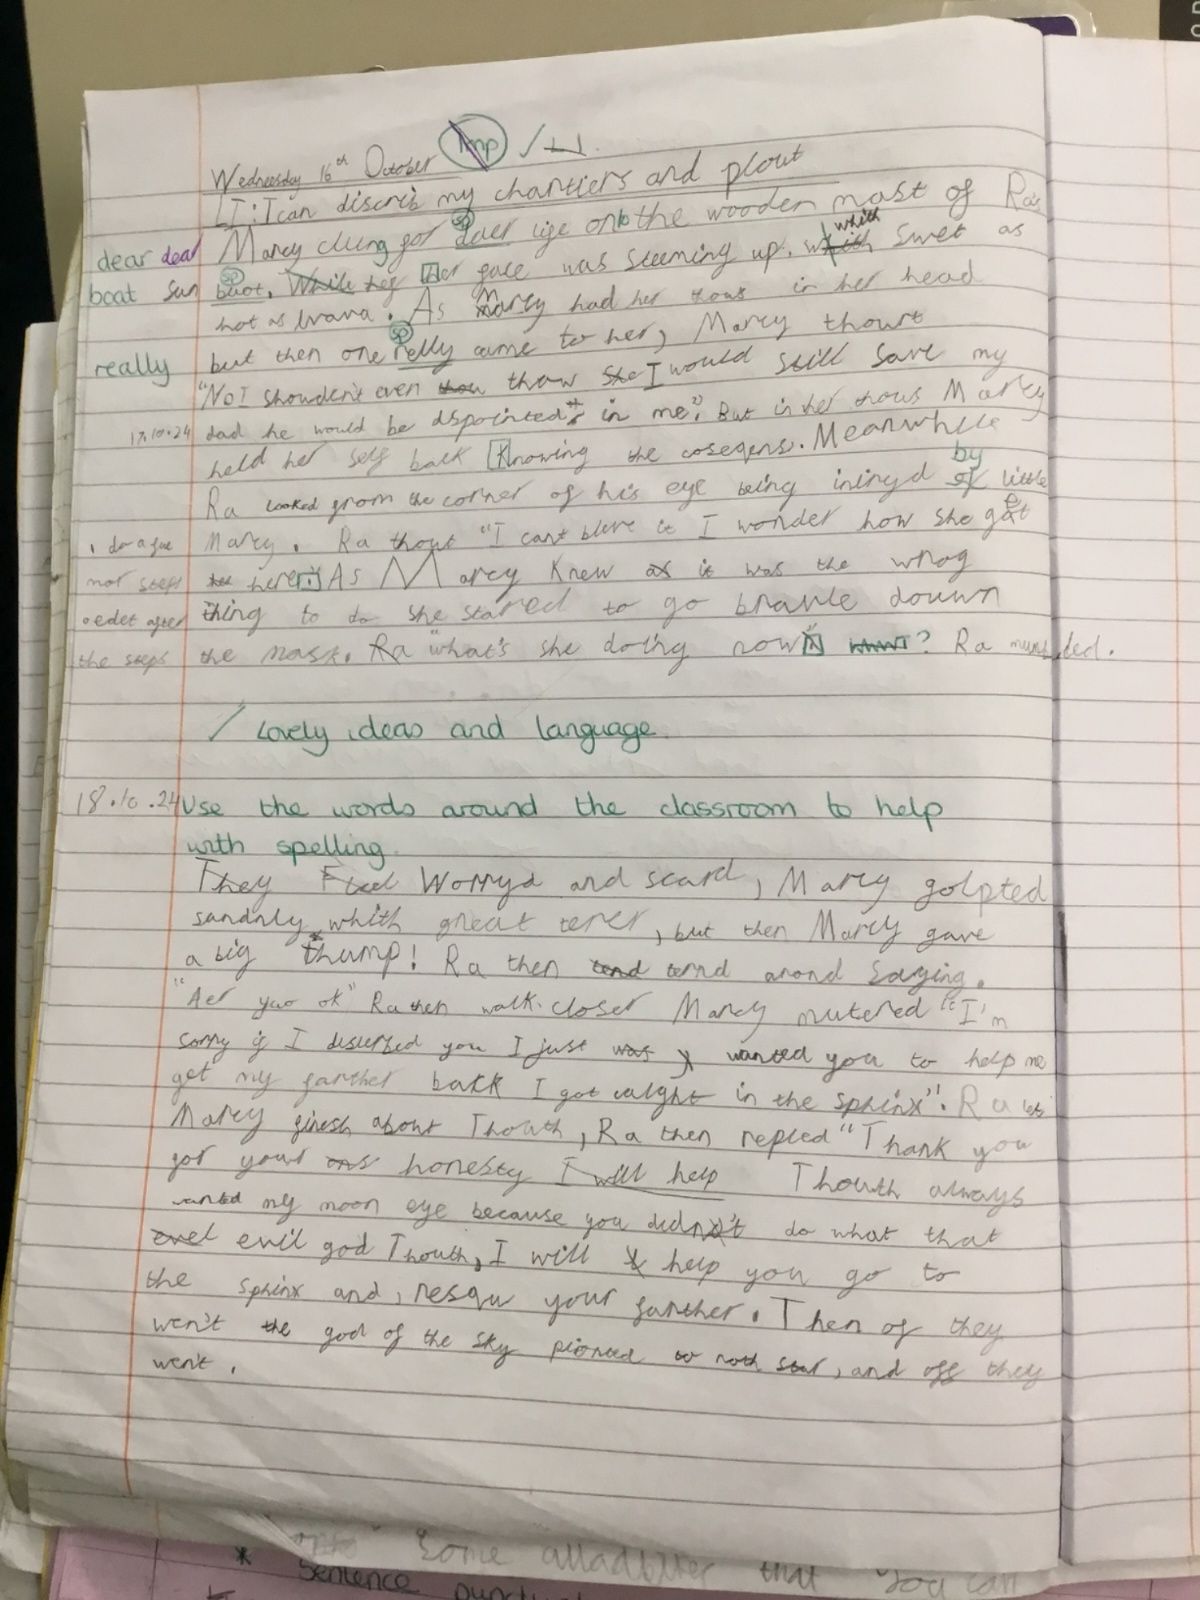 Imp
Wednesday 16th October
LI: I can discrib my charitiers and plout
dear dear Marcy clung gor daer lige onto the wooden mast of Ra's
boat sun buot. While hey Her gace was steeming up. with whith swet as
hot as lrava. As Marcy had her thous in her head
really but then one relly came to her, Marcy thourt
"No I showden't even thou thow She I would still save my
17.10.24 dad he would be dispointed in me". But in her thous Marcy
held her self back Knowing the coseqens. Meanwhile
by
Ra looked grom the corner of his eye being inliryd of little
Marcy. Ra thout "I cant bleve it I wonder how she get
not steps here. As Marcy Knew as it was the wrog
after thing to do she stared to go bravle douwn
the steps the mask. Ra "what's she doing now"? Ra ded.
Lovely ideas and language
18.10.24 Use the words around the classroom to help
with spelling.
They Fleel Worryd and scard, Marcy golpted
sandnly whith great terer, but then Marcy gave
a big thump! Ra then tend ternd arond saying.
"Aer yao ok" Ra then walk closer Marcy mutered "I'm
sorry ig I disterbed you I just was wanted you to help me
get my garther back I got caught in the sphinx". Ra
Marcy ginesh about Thouth, Ra then repled "Thank you
gor your honesty I will help Thouth always
wanted my moon eye because you didn't do what that
evel evil god Thouth, I will help you go to
the sphinx and, resqu your garther. Then of they
wen't the god of the sky piorted to noth star, and off they
wen't.
Some that you can
* Sentence